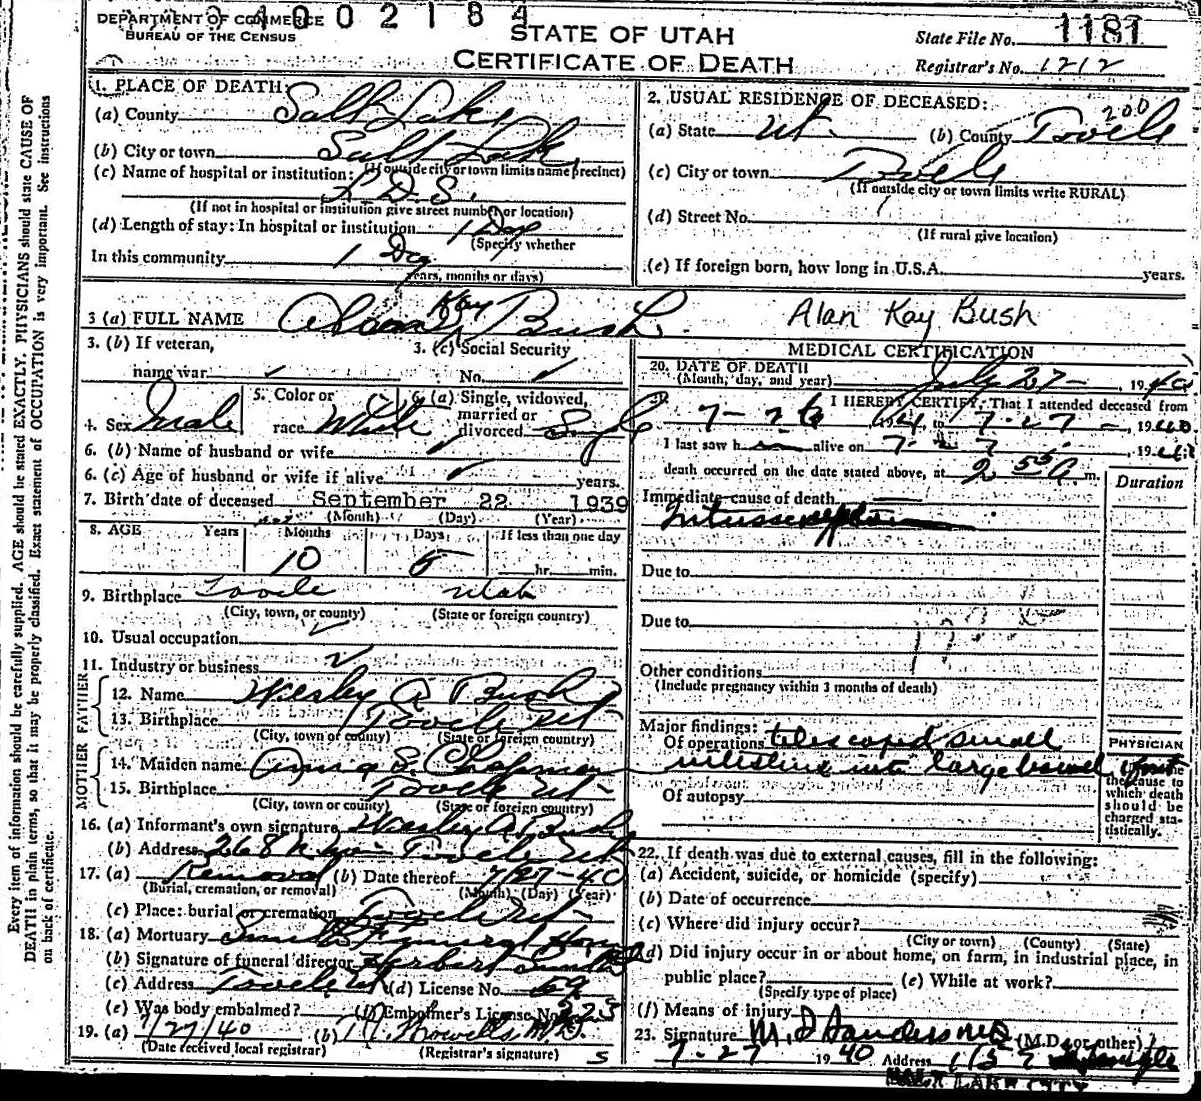 DEPARTMENT OF COMMERCE
BUREAU OF THE CENSUS
4002184
STATE OF UTAH
CERTIFICATE OF DEATH
State File No. 1181
Registrar's No. 1212
Every item of information should be carefully supplied. AGE should be stated EXACTLY. PHYSICIANS should state CAUSE OF
DEATH in plain terms, so that it may be properly classified. Exact statement of OCCUPATION is very important. See instructions
on back of certificate.
1. PLACE OF DEATH:
(a) County Salt Lake
(b) City or town Salt Lake
(If outside city or town limits name precinct)
(c) Name of hospital or institution:
L. D. S.
(If not in hospital or institution give street number or location)
(d) Length of stay: In hospital or institution 1 Day
(Specify whether
In this community 1 Day
years, months or days)
2. USUAL RESIDENCE OF DECEASED:
200
(a) State Ut. (b) County Tooele
(c) City or town Tooele
(If outside city or town limits write RURAL)
(d) Street No.
(If rural give location)
(e) If foreign born, how long in U.S.A. years.
3 (a) FULL NAME Alan Kay Bush
Alan Kay Bush
3. (b) If veteran,
name war
3. (c) Social Security
No.
4. Sex Male
5. Color or
race White
6. (a) Single, widowed,
married or
divorced Single
6. (b) Name of husband or wife
6. (c) Age of husband or wife if alive years.
7. Birth date of deceased September 22 1939
(Month) (Day) (Year)
8. AGE Years Months Days If less than one day
10 5 hr. min.
9. Birthplace Tooele Utah
(City, town, or county) (State or foreign country)
10. Usual occupation
11. Industry or business
FATHER
12. Name Wesley A Bush
13. Birthplace Tooele Ut
(City, town or county) (State or foreign country)
MOTHER
14. Maiden name Anna E. Chapman
15. Birthplace Tooele Ut
(City, town or county) (State or foreign country)
16. (a) Informant's own signature Wesley A Bush
(b) Address 268 N Tooele Ut
17. (a) Removal (b) Date thereof 7/27-40
(Burial, cremation, or removal) (Month) (Day) (Year)
(c) Place: burial or cremation Tooele Ut
18. (a) Mortuary Smith Funeral Home
(b) Signature of funeral director Herbert Smith
(c) Address Tooele Ut (d) License No. 69
(e) Was body embalmed? (f) Embalmer's License No. 223
19. (a) 7/27/40 (b) M.D.
(Date received local registrar) (Registrar's signature)
MEDICAL CERTIFICATION
20. DATE OF DEATH
(Month, day, and year) July 27 - , 1940
I HEREBY CERTIFY, That I attended deceased from
7-26 , 1940 to 7-27 - , 1940
I last saw h alive on 7-27 , 1940
death occurred on the date stated above, at 2 55 A m.
Duration
Immediate cause of death
Intussusception
Due to
Due to
Other conditions
(Include pregnancy within 3 months of death)
Major findings:
Of operations telescoped small
intestine into large bowel
Of autopsy
PHYSICIAN
the cause to
which death
should be
charged sta-
tistically.
22. If death was due to external causes, fill in the following:
(a) Accident, suicide, or homicide (specify)
(b) Date of occurrence
(c) Where did injury occur?
(City or town) (County) (State)
(d) Did injury occur in or about home, on farm, in industrial place, in
public place? (e) While at work?
(Specify type of place)
(f) Means of injury
23. Signature M. D. Sanders MD (M.D. or other)
7-27 1940 Address
SALT LAKE CITY